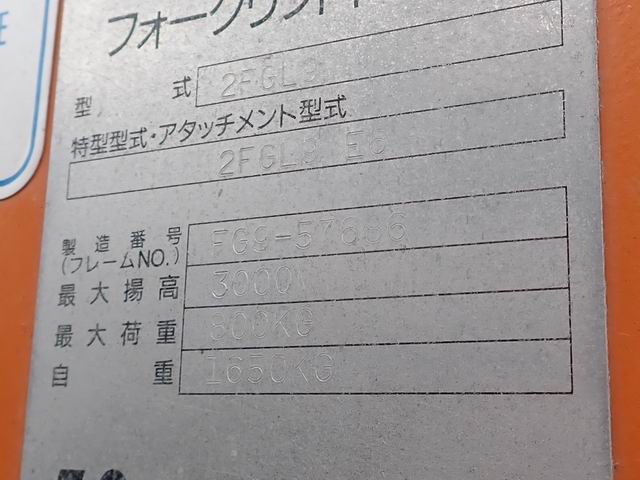 フォークリフト
型 式 2FGL9
特型型式・アタッチメント型式
2FGL9 E6
製造番号
(フレームNO.) FG9-57686
最大揚高 3000
最大荷重 900KG
自 重 1650KG